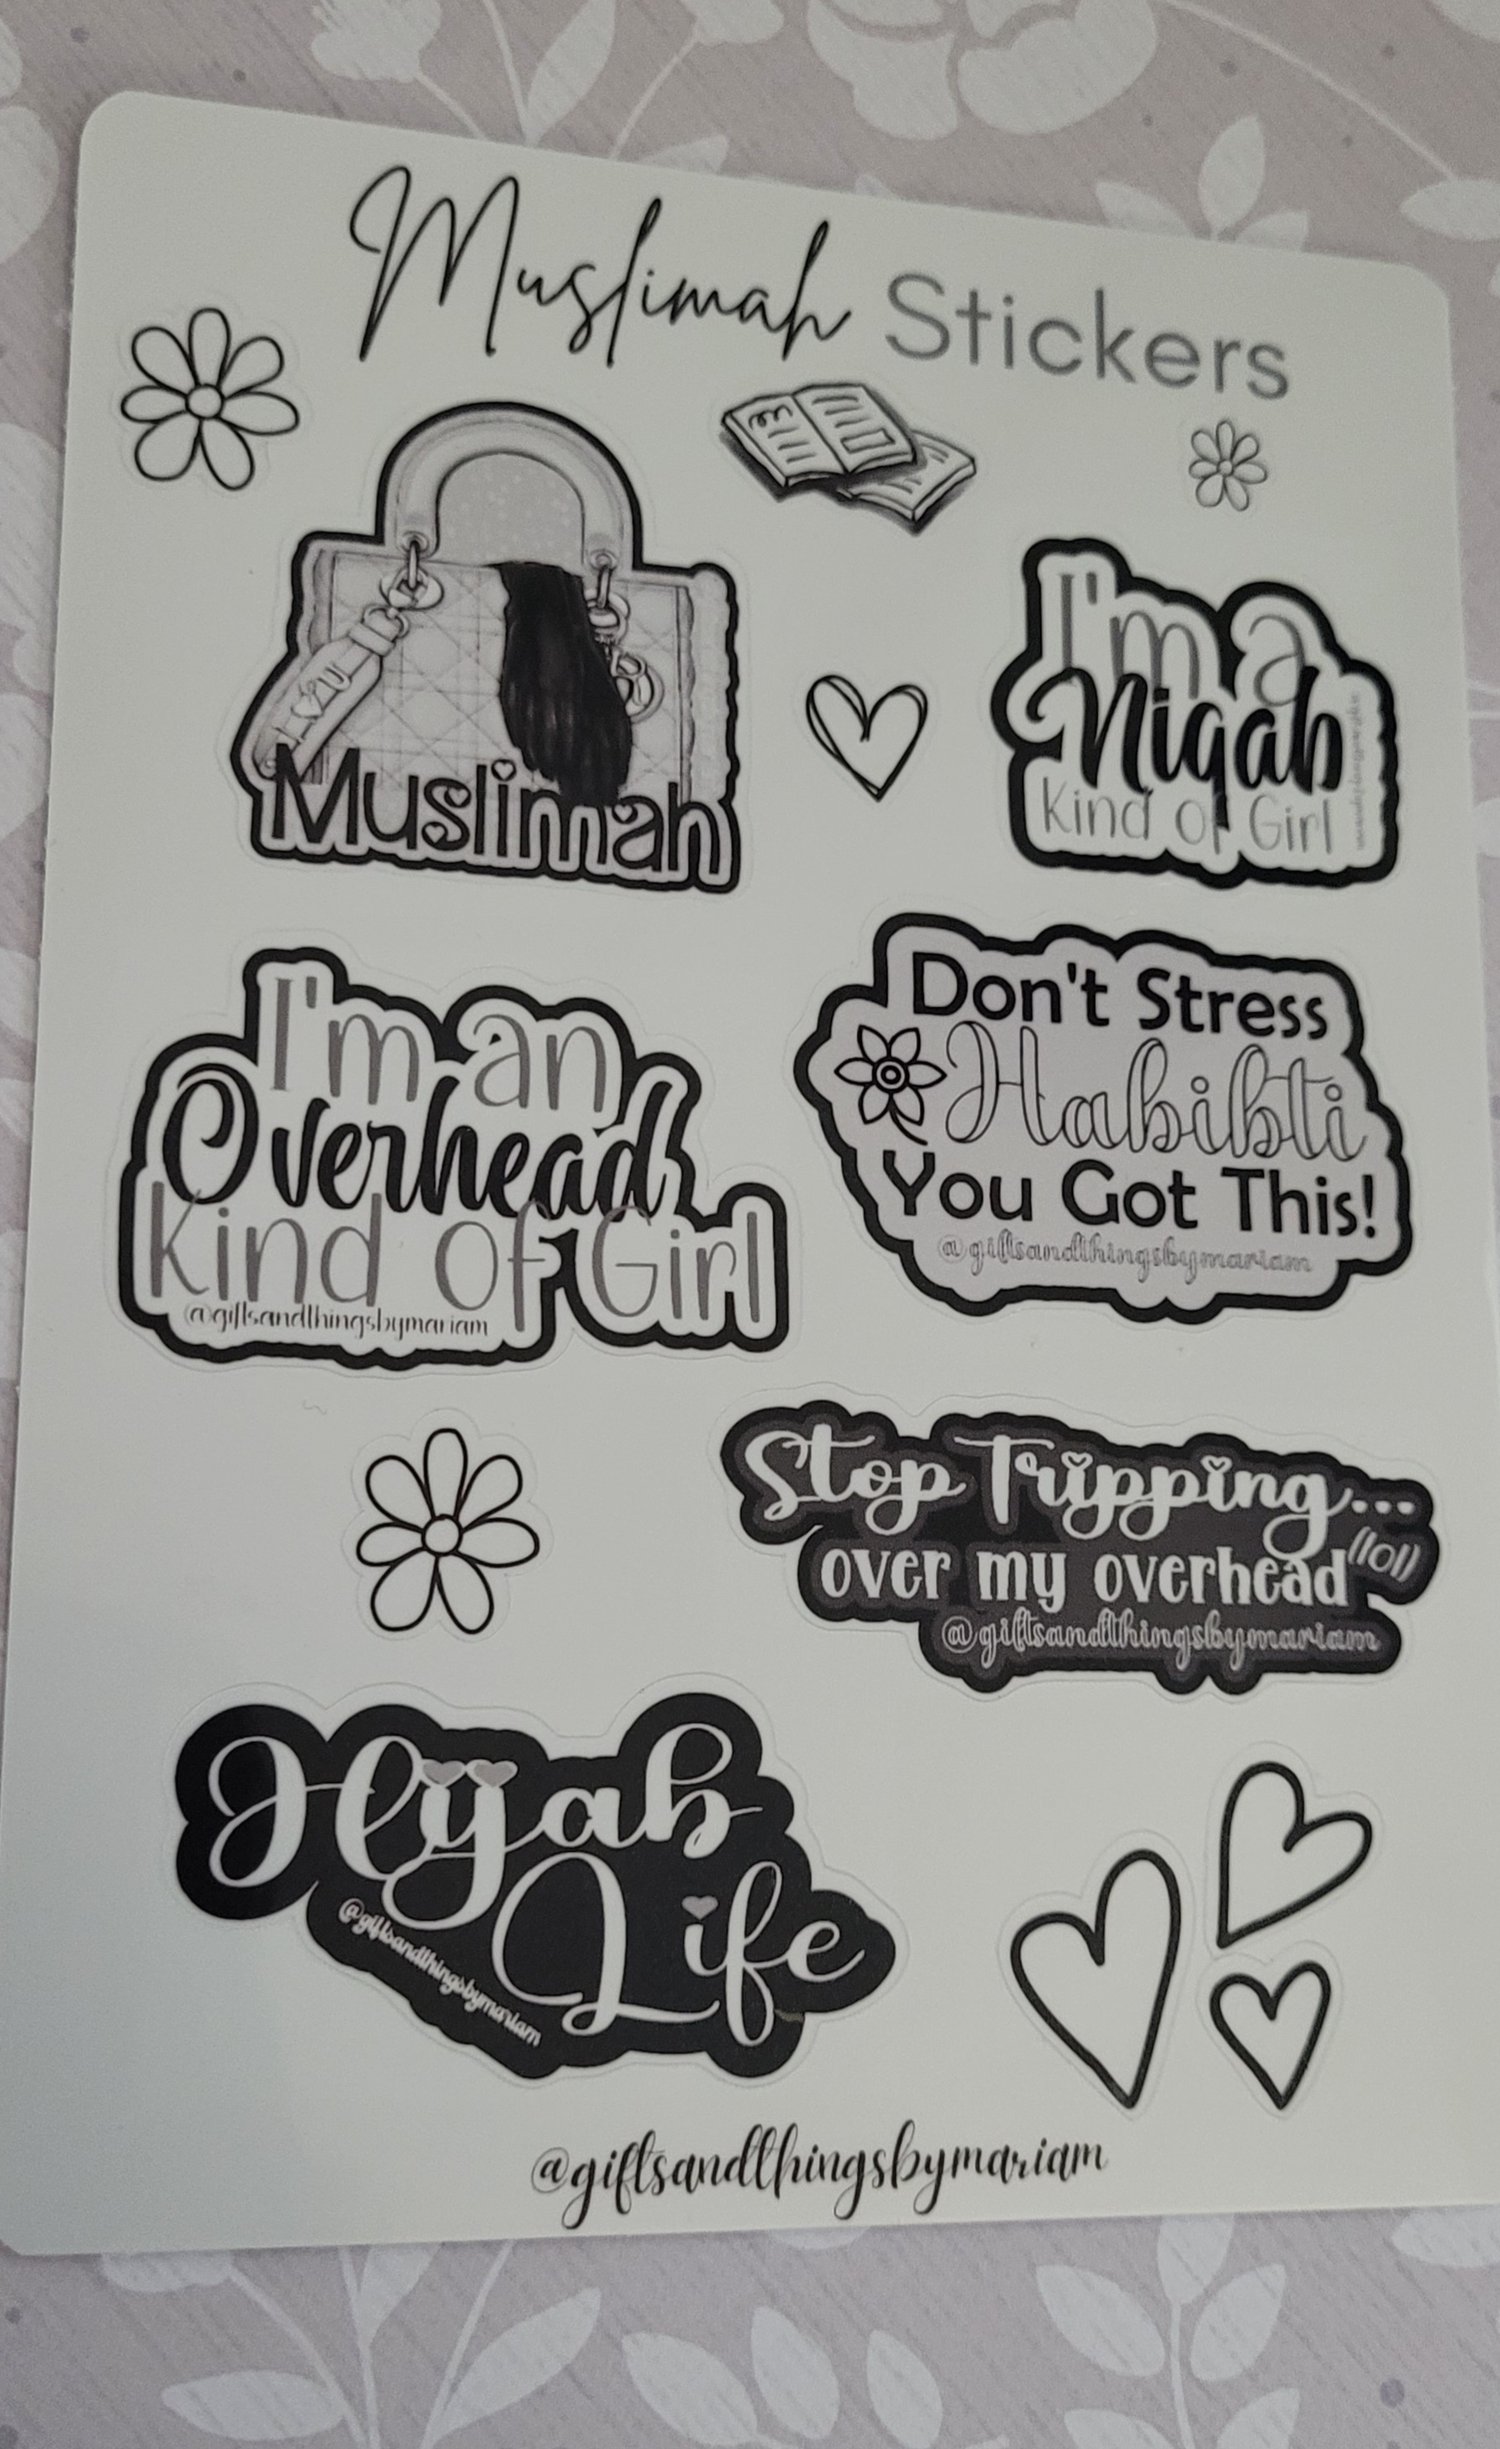 Muslimah Stickers
I ♡ U
Muslimah
I'm a
Niqab
Kind of Girl
I'm an
Overhead
Kind of Girl
@giftsandthingsbymariam
Don't Stress
Habibti
You Got This!
@giftsandthingsbymariam
Stop Tripping...
over my overhead
((lol))
@giftsandthingsbymariam
Hijab
Life
@giftsandthingsbymariam
@giftsandthingsbymariam